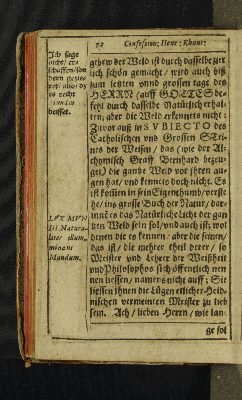 72 Confession; Henr: Khunr:
Ich sage
nicht/ er=
schaffen/son
dern
es recht
heisset.
gehew der Welt ist durch dasselbe
sich schön gemacht/ wird auch biß
zum letzten vnnd grossen tage des
HERRN/auff GOTTES be=
fehl durch dasselbe Natürlich erhal=
ten; aber die Welt erkennets nicht:
Zuvor auß in SVBIECTO des
Catholischen vnd Grossen STei=
nes der Weisen/ das (wie der Al=
chymisch Graff Bernhard bezeu=
get) die gantze Welt vor ihren au=
gen hat/ vnd kennets doch nicht. Es
ist kommen in sein Eigenthumb verste=
he/ins grosse Buch der Natur/ dar=
innē es das Natürliche Licht der gan
tzen Welt sein sol/vnd auch ist; wol
denen die es kennen: aber die seinen/
das ist/ die mehrer theil derer/ so
Meister vnd Lehrer der Weißheit
vnd Philosophos sich öffentlich nen
nen liessen/ namens nicht auff; Sie
liessen ihnen die Lügen etlicher Heid=
nischen vermeinten Meister zu lieb
sein. Ach/ lieben Herrn/ wie lan=
LVX MVN
DI Natura=
lites illum
minans
Mundum.
ge sol